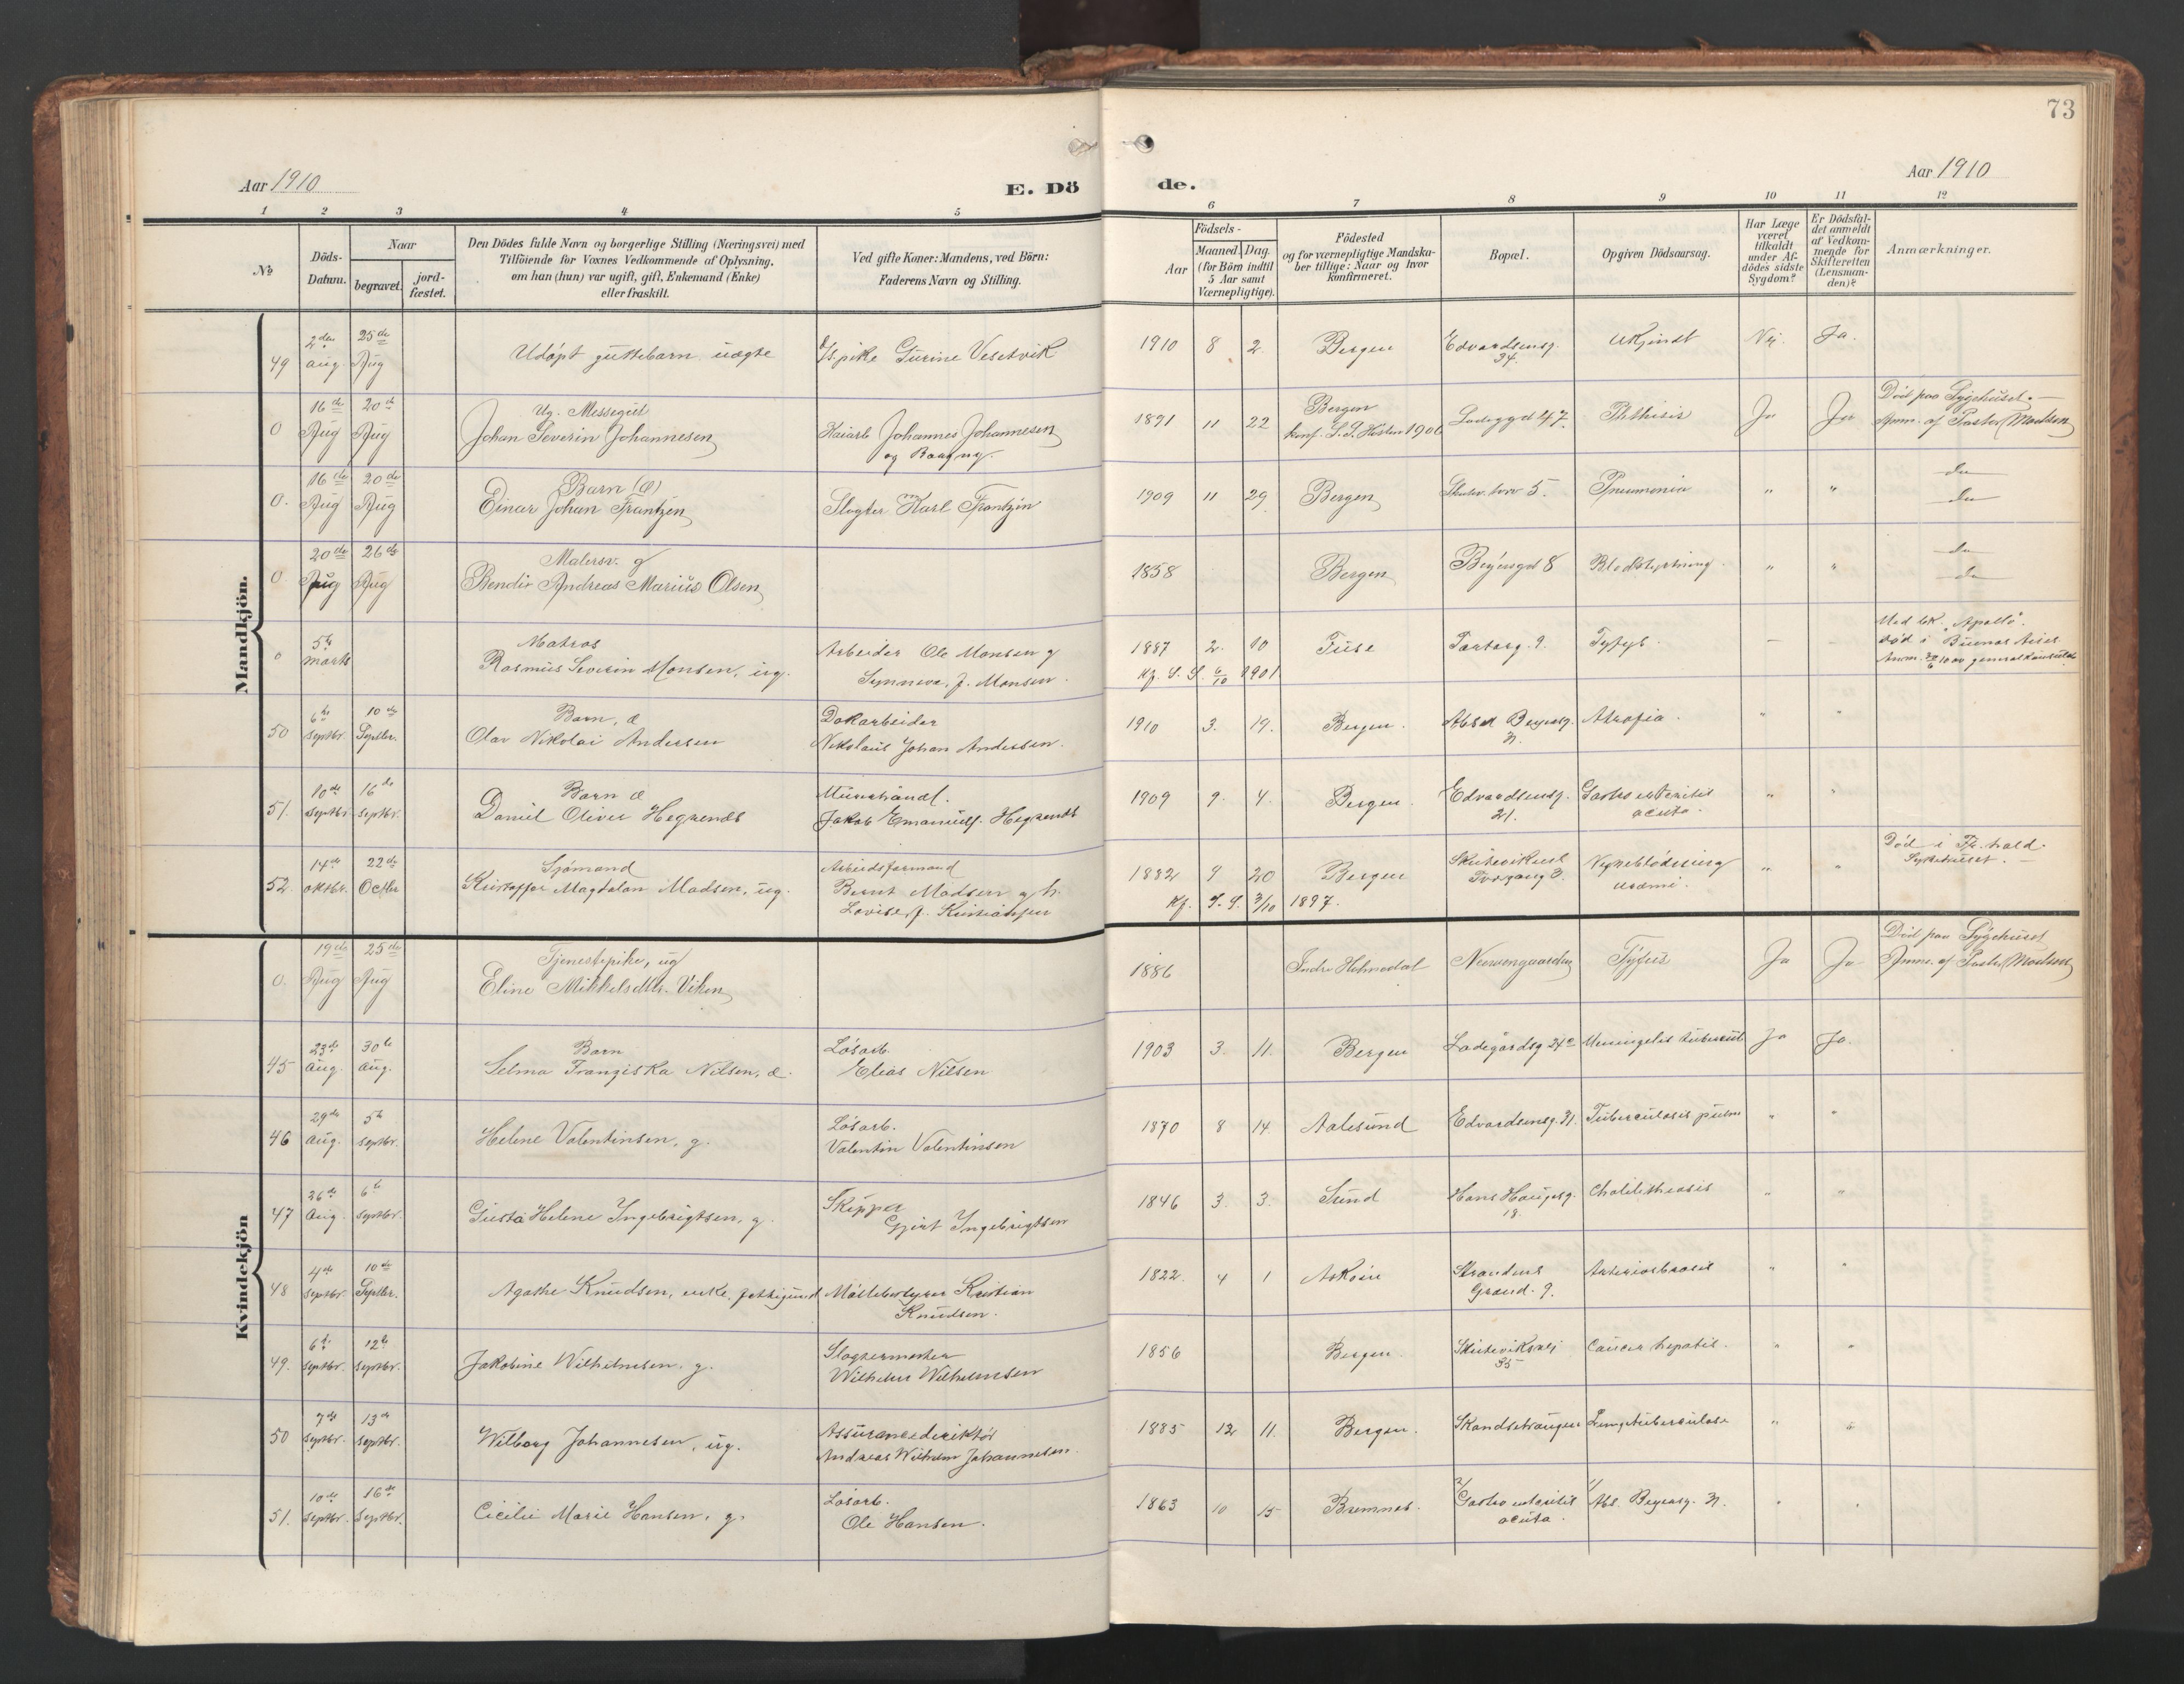 73
Aar 1910
E. Dö
de.
Aar 1910
1 2 3 4 5 6 7 8 9 10 11 12
No
Döds-
Datum.
Naar
begravet.
jord-
fæstet.
Den Dödes fulde Navn og borgerlige Stilling (Næringsvei) med
Tilföiende for Voxnes Vedkommende af Oplysning,
om han (hun) var ugift, gift, Enkemand (Enke)
eller fraskilt.
Ved gifte Koner: Mandens, ved Börn:
Faderens Navn og Stilling.
Födsels-
Aar
Maaned. Dag.
(for Börn indtil
5 Aar samt
Værnepligtige).
Födested
og for værnepligtige Mandska-
ber tillige: Naar og hvor
konfirmeret.
Bopæl.
Opgiven Dödsaarsag.
Har Læge
været
tilkaldt
under Af-
dödes sidste
Sygdom?
Er Dödsfal-
det anmeldt
af Vedkom-
mende for
Skifteretten
(Lensman-
den)?
Anmærkninger.
Mandkjön.
49 2den Aug. 25de Aug Udöpt guttebarn uægte Gurine Vesetvik 1910 8 2. Bergen Edvardsensg. 34. Ukjendt Nei. Ja.
0 16de Aug 20de Aug Ug. Messegut
Johan Severin Johannesen Johannes Johannesen 1891 11 22 Bergen 47. Phthisis Ja Ja Död paa Sygehuset.
Anm. af Pastor Madsen
0. 16de Aug 20de Aug Barn (Æ)
Einar Johan Frantzen Slagter Karl Frantzen 1909 11 29 Bergen 5. Pneumonia " " do
do
0 20de Aug 26de Aug Malersv. g
Bendix Andreas Marius Olsen 1858 Bergen Beyersgd 8 Blodstyrtning. " " do
do
0 5te marts Matros
Rasmus Severin Monsen, ug. Arbeider Ole Monsen g
Synneve, J. Monsen. 1887 2. 10 Fuse 9. – – "Apollo".
död i Buenos Aires
Kf. S. S. 6/10 1901.
50 6te Septbr. 10de Septbr. Barn, æ
Olav Nikolai Andersen Dokarbeider
Nikolaus Johan Andersen. 1910 3. 19. Bergen. Beyersg. Atrofia. " "
51. 10de Septbr. 16de Septbr. Barn æ
Daniel Oliver Hegrenes Jakob Hegrenes 1909 9. 4. Bergen. Edvardsensg. 21. Gastro enteritis
acuta. " "
52. 14de Oktbr. 22de Octbr Sjömand
Kristoffer Magdalon Madsen, ug. Arbeidsformand
Bernt Madsen g. h.
Lovise, f. Kristiansen 1882 9 20 Bergen 3. Nyreblödning
uræmi. " " Död i Fr.hald
Sykehuset. –
Kf. S. S. 3/10 1897.
Kvindekjön
0. 19de Aug 25de Aug Tjenestepike, ug
Eline Mikkelsdtr. Viken 1886 Indre Holmedal Tyfus Ja Ja Död paa Sygehuset
Anm. af Pastor Madsen
45 23de Aug. 30te Aug. Barn
Selma Franziska Nilsen, æ. Lösarb.
Elias Nilsen 1903 3. 11. Bergen Ladegårdsg Ja Ja.
46 29de Aug. 5te Septbr. Helene Valentinsen, g. Lösarb.
Valentin Valentinsen 1870 8 14. Aalesund Edvardsensg. 31. Tuberculosis pulm " "
47 26de Aug. 6te Septbr. Gusta Helene Ingebrigtsen, g. Skipper
Gjert Ingebrigtsen 1846 3. 3. Sund Hans Haugesg.
18. " "
48 4de Septbr. 10de Septbr. Agathe Knudsen, enke, Kristian
Knudsen. 1822. 4 1 Asköen 9. " "
49. 6te Septbr. 12te Septbr. Jakobine Wilhelmsen. g. Slagtermester
Wilhelm Wilhelmsen 1856 Bergen. Skuteviksvei
35 Cancer hepatis. " "
50 7de Septbr. 13de Septbr. Wilborg Johannesen, ug. Assurancedirektör
Andreas Wilhelm Johannesen. 1885 12 11. Bergen. Lungetuberculose " "
51. 10de Septbr. 16de Septbr. Cicilie Marie Hansen, g. Lösarb.
Ole Hansen. 1863 10 15 Bremnes. 2/ Gastro enteritis
acuta. 1/ Abs. Beyersg. " "